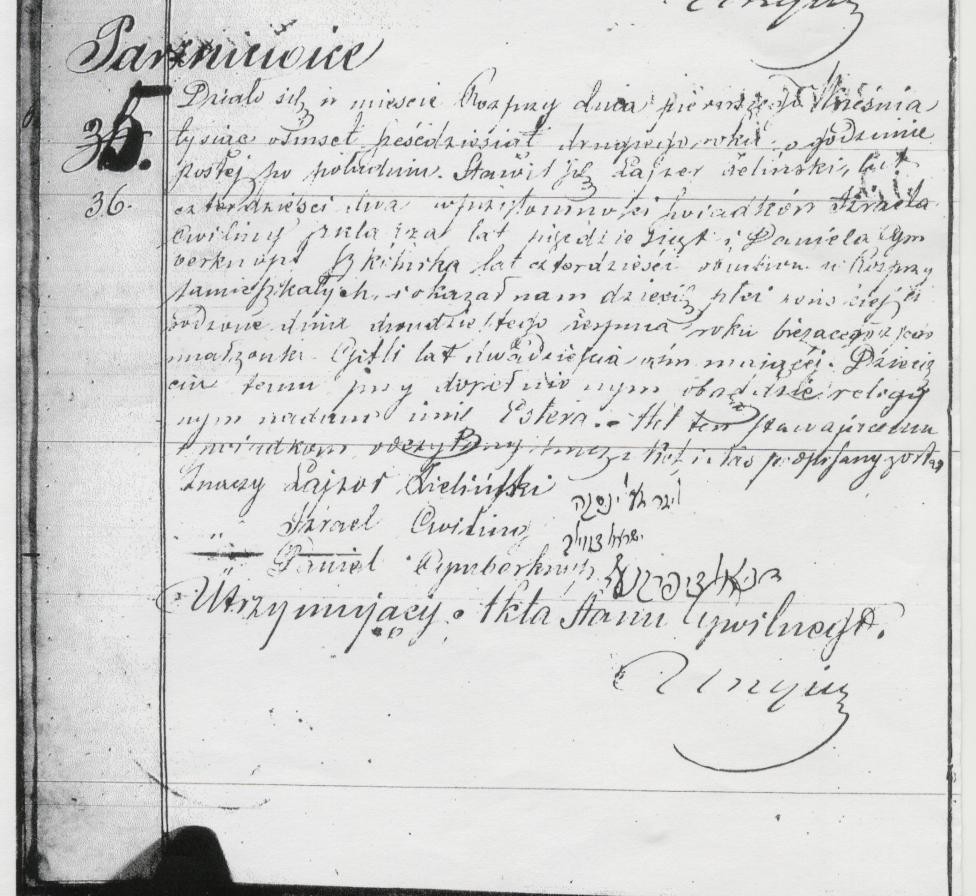 Parzniewice
5.
36.
Działo się w mieście Rozprzy dnia pierwszego Września
tysiąc ośmset sześćdziesiąt drugiego roku o godzinie
szóstej po południu. Stawił się Lajzer Zieliński, lat
czterdzieści dwa w przytomności świadków Izraela
Cwiling szklarza lat pięćdziesiąt i Daniela Cym
berknopf lat czterdzieści w Rozprzy
zamieszkałych, i okazał nam dziecię płci żeńskiej
rodzone dnia dwudziestego sierpnia roku bieżącego z jego
małżonki Cytli lat dwadzieścia ośm mającej. Dziecię
ciu temu przy dopełnionym obrządzie religij
nym nadano imię Estera. Akt ten stawającemu
i świadkom odczytany i podpisany został
Znaczy Lajzer Zieliński
" Izrael Cwiling
" Daniel Cymberknopf
Utrzymujący Akta Stanu Cywilnego.